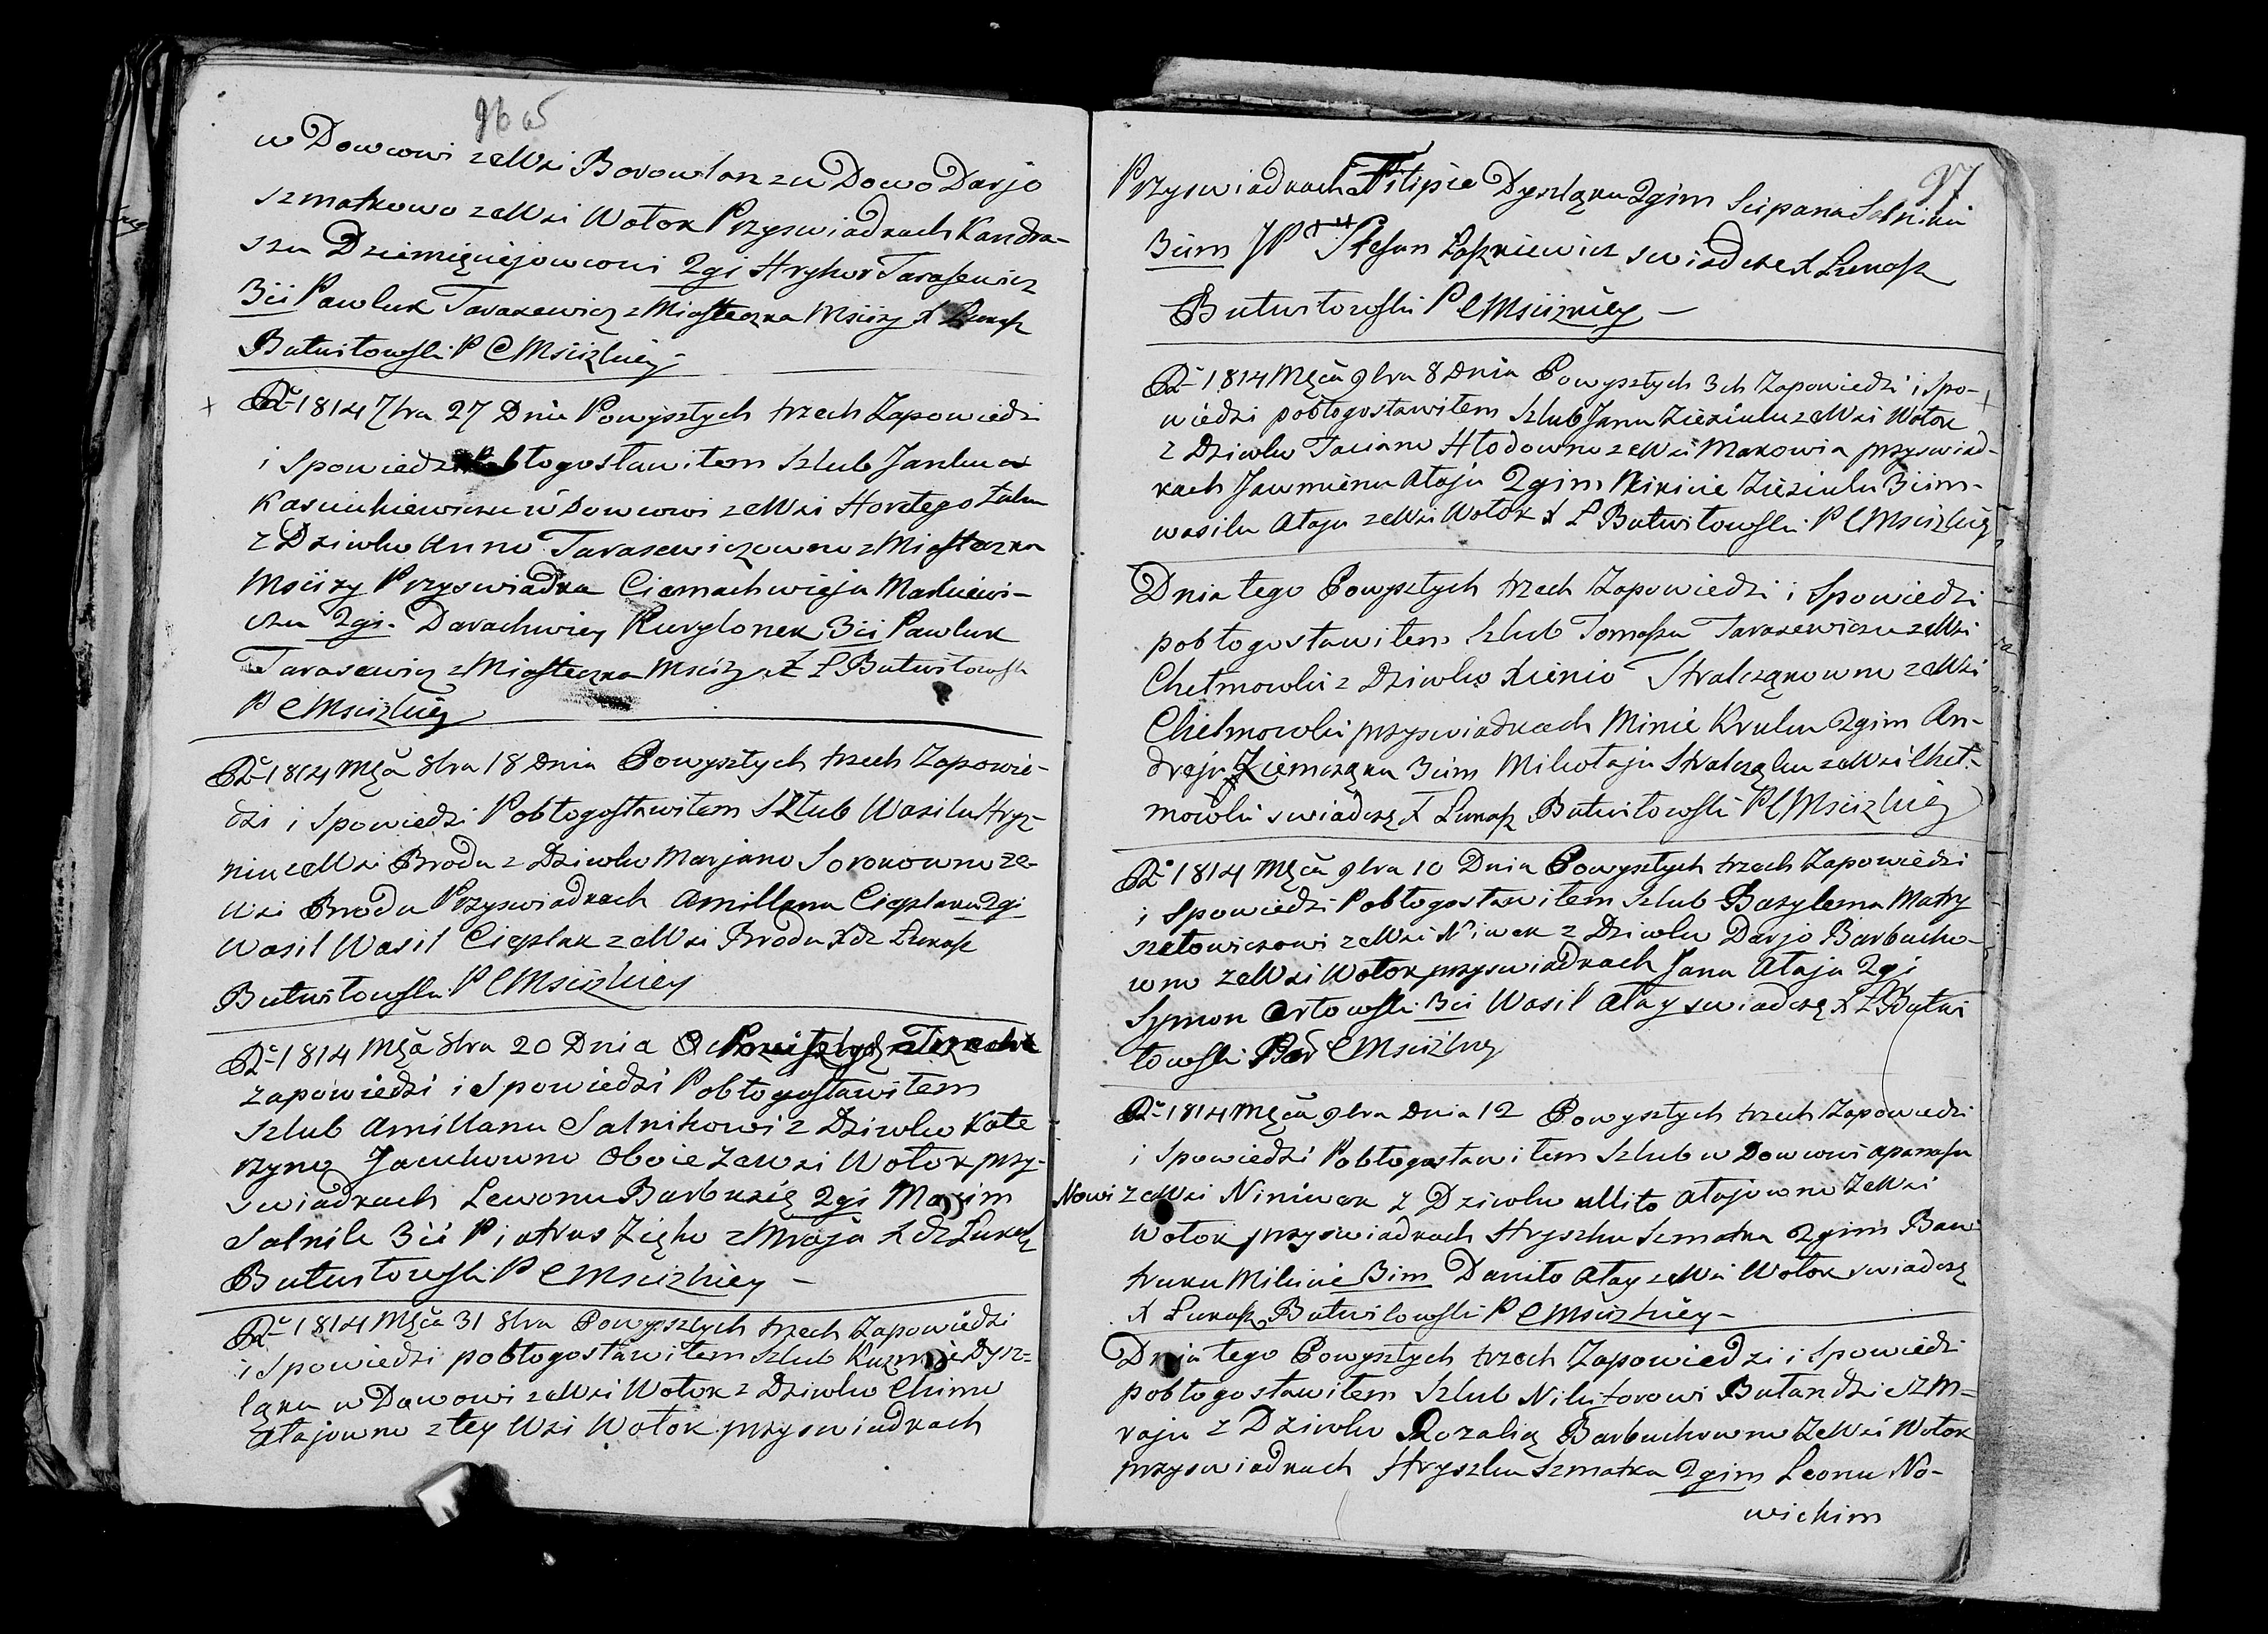 96
w Dowcowi ze Wsi Borowlan z w Dowo Darjo
Szmatkowo ze Wsi Wołok Przyswiadkach Kandra-
szu 2gi Hryhor Tarasewicz
3ci Pawluk Tarasewicz z Miasteczka Mscizy X Łukasz
Butwiłowski P C Mscizkiey
Rŭ 1814 7bra 27 Dnia Powyszłych trzech Zapowiedzi
i Spowiedzi Pobłogosławiłem Szlub Janku
w Dowcowi ze Wsi
z Dziwko Anno Tarasewiczowno z Miasteczka
Mscizy Przyswiadka Markiewi-
czu 2gi. Kurylonek 3ci Pawluk
Tarasewicz z Miasteczka Mscizy X Ł Butwiłowski
P C Mscizkiey
Rŭ 1814 Msca 8bra 18 Dnia Powyszłych trzech Zapowie-
dzi i Spowiedzi Pobłogosławiłem Szlub Wasilu Hrysz-
niu ze Wsi Brodu z Dziwko Marjano Sorokowno ze-
Wsi Brodu Przyswiadkach Amillanu Cieplaku 2gi
Wasil Wasil Cieplak ze Wsi Brodu X dz Łukasz
Butwiłowski P C Mscizkiey
Rŭ 1814 Msca 8bra 20 Dnia Powyszłych Trzech
Zapowiedzi i Spowiedzi Pobłogosławiłem
Szlub Amillanu Salnikowi z Dziwko Kate
rzyną Jacukowno Oboie ze Wsi Wołok przy-
swiadkach Lewonu 2gi Maxim
Salnik 3ci Piatrus Zięko z Mraja X dz Łukasz
Butwiłowski P C Mscizkiey -
Rŭ 1814 Msca 31 8bra Powyszłych trzech Zapowiedzi
i Spowiedzi pobłogosławiłem Szlub Kuzmie Dysz-
laku w Dowcowi ze Wsi Wołok z Dziwko Chimo
Atajowno z tey Wsi Wołok przyswiadkach
97
Przyswiadkach Filipie Dyszlaku 2gim Scipana Salnika
3cim JP Stefan Łaszkiewicz swiadcze X Łukasz
Butwiłowski P C Mscizkiey -
Rŭ 1814 Msca 9bra 8 Dnia Powyszłych 3ch Zapowiedzi i Spo-
wiedzi pobłogosławiłem Szlub Janu Zieziulu ze Wsi Wołok
z Dziwko Taciano Hłodowno ze Wsi Makowia przyswiad-
kach Jawmienu Ataju 2gim Mikicie Zieziulu 3cim-
wasilu Ataju ze Wsi Wołok X Ł Butwiłowski P C Mscizkiey
Dnia tego Powyszłych trzech Zapowiedzi i Spowiedzi
pobłogosławiłem Szlub Tomaszu Tarasewiczu ze Wsi
Chełmowki z Dziwko Xienio Stralczakowno ze Wsi
Chełmowki przyswiadkach Minie Krulu 2gim An-
dreju Ziemczaku 3cim Mikołaju Stralczaku ze Wsi Cheł-
mowki swiadczę X Łukasz Butwiłowski P C Mscizkiey
Rŭ 1814 Msca 9bra 10 Dnia Powyszłych trzech Zapowiedzi
i Spowiedzi Pobłogosławiłem Szlub
ze Wsi Niwek z Dziwko Darjo Barbucho-
wno ze Wsi Wołok przyswiadkach Jana Ataju 2gi
Symon Orłowski 3ci Wasil Atay swiadczę X Ł Butwi
łowski Par C Mscizkiey
Rŭ 1814 Msca 9bra Dnia 12 Powyszłych trzech Zapowiedzi
i Spowiedzi Pobłogosławiłem Szlub w Dowcowi apanasu
Nowi ze Wsi Niniwek z Dziwko Atajowno ze Wsi
Wołok przyswiadkach Hryszku Szmatka 2gim Baw
truku Mikicie 3cim Daniło Atay ze Wsi Wołok swiadczę
X Łukasz Butwiłowski P C Mscizkiey-
Dnia tego Powyszłych trzech Zapowiedzi i Spowiedzi
pobłogosławiłem Szlub Nikiforowi z M-
raju z Dziwko Rozalią Barbuchowno ze Wsi Wołok
przyswiadkach Hryszku Szmatka 2gim Leonu No-
wickim